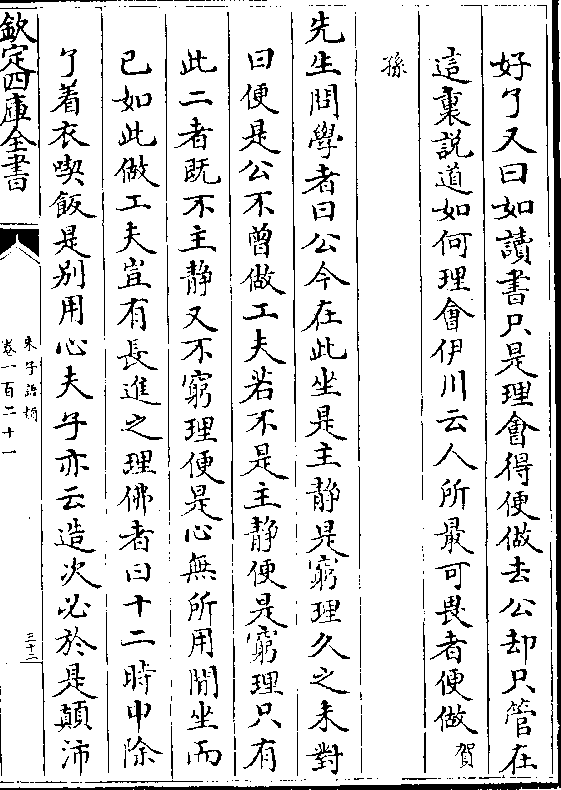 好了又曰如讀書只是理會得便做去公却只管在
這裏説道如何理會伊川云人所最可畏者便做賀
孫
先生問學者曰公今在此坐是主静是窮理久之未對
曰便是公不曽做工夫若不是主静便是窮理只有
此二者既不主静又不窮理便是心無所用閒坐而
已如此做工夫豈有長進之理佛者曰十二時中除
了着衣喫飯是别用心夫子亦云造次必於是顛沛
欽定四庫全書
朱子語類
卷一百二十一
三十二